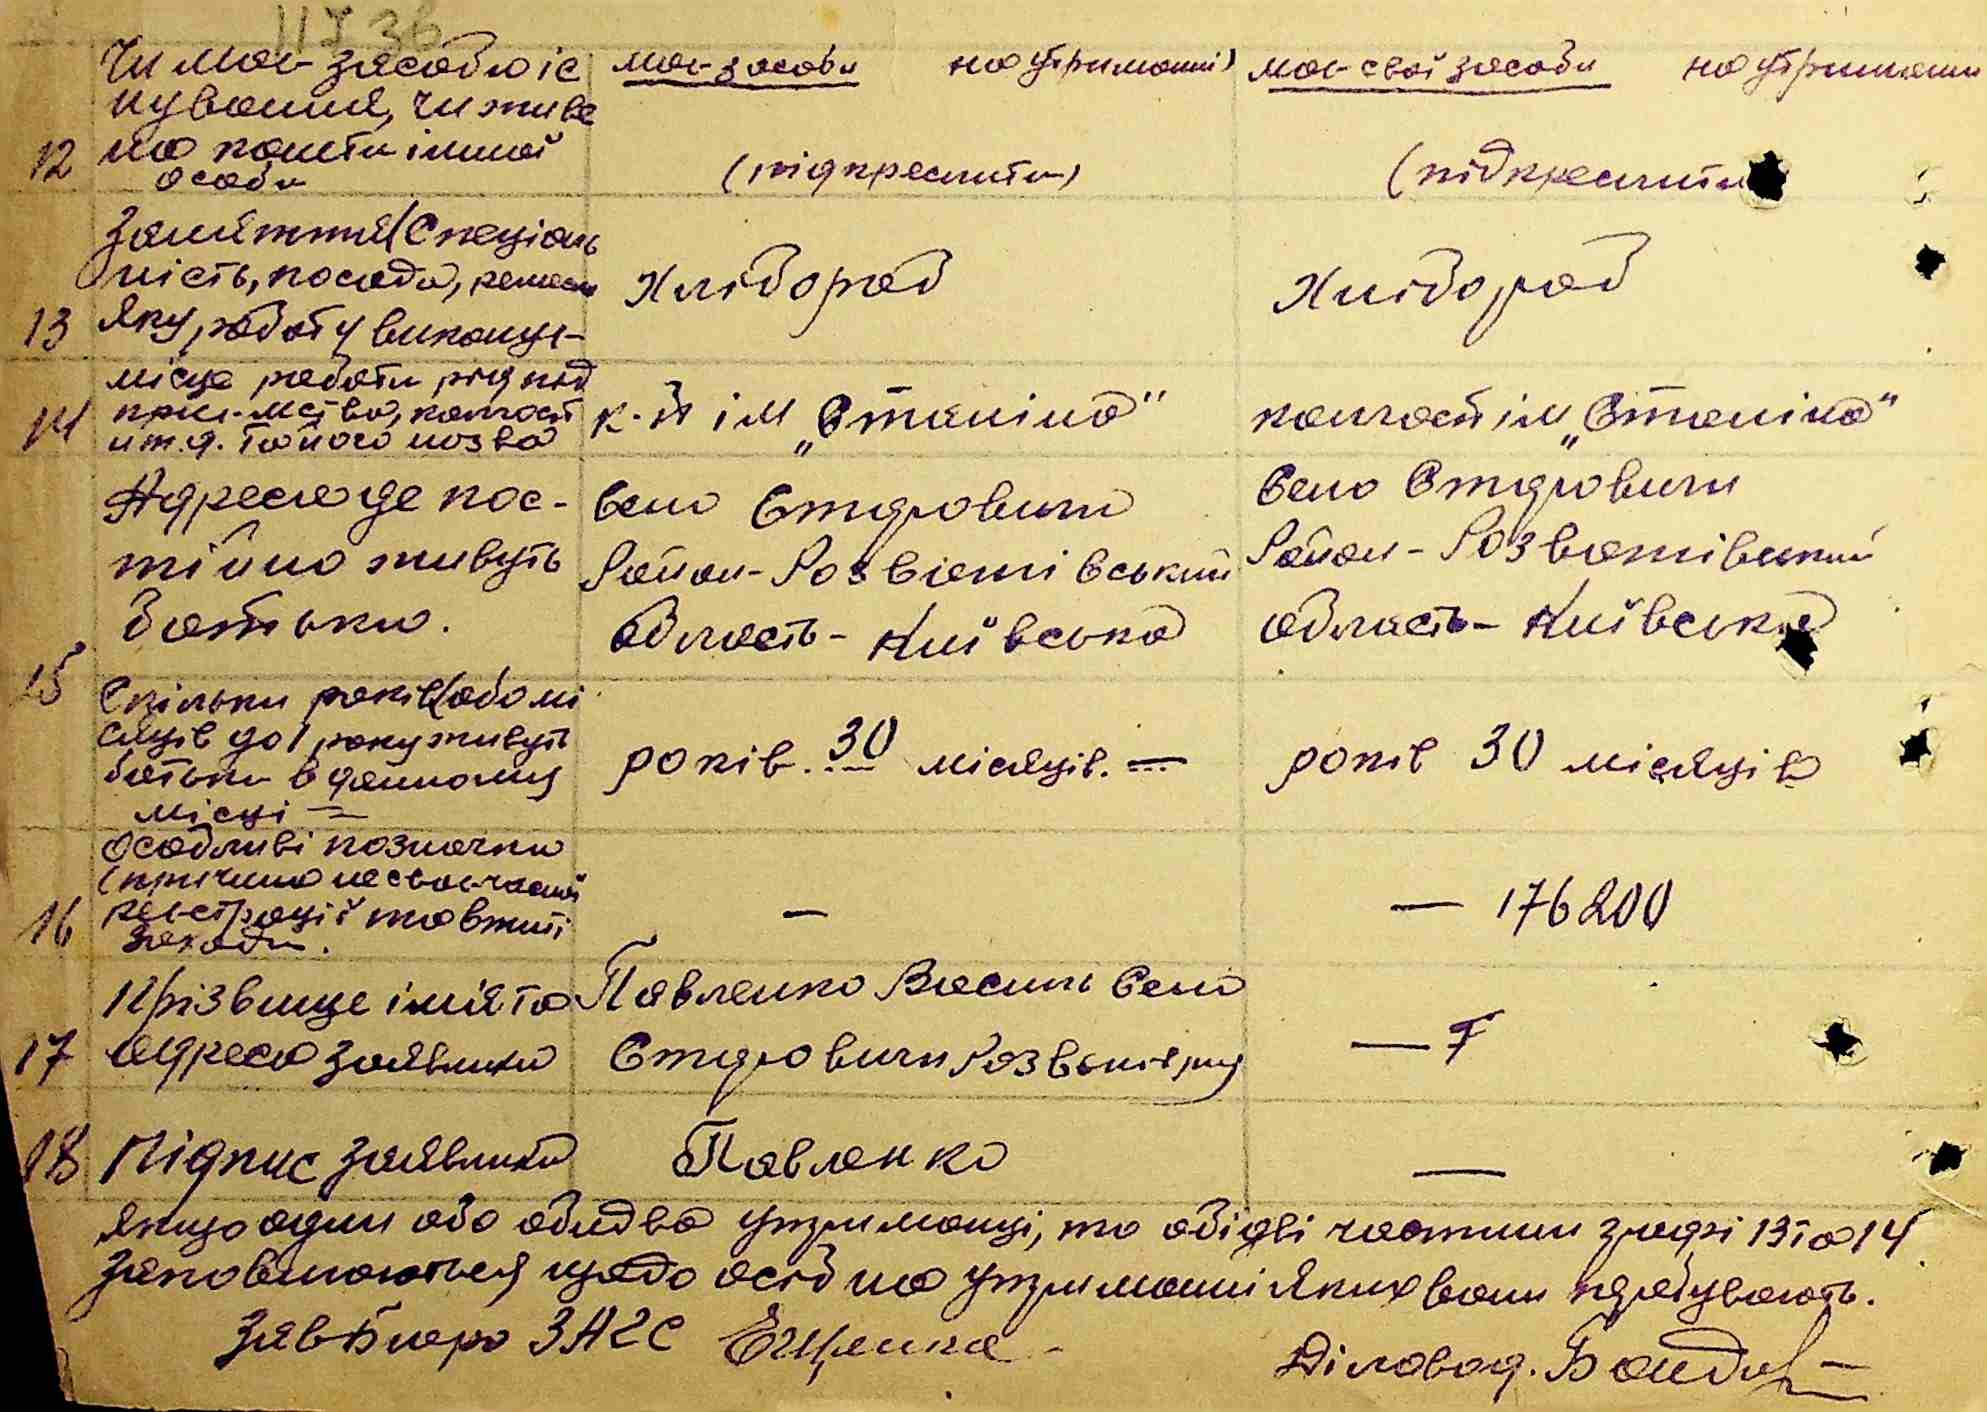 117 36
Чи має засоби іс
нування, чи живе
на кошти іншої
особи
12
має засоби на утриманні
(підкреслити)
має свої засоби на утриманні
(підкреслити
Заняття (Спеціаль
ність, посада, ремесло
Яку роботу виконує-
13
Хлібороб
Хлібороб
місце роботи підпод
приємство, колгосп
и т.д. та його назва
14
к-п ім „Сталіна"
колгосп ім „Сталіна"
Адреса де пос-
тійно живуть
батьки.
15
Село Стидовичи
Район - Розважівський
область - Київська
Село Стидовичи
Район - Розважівський
область - Київська
Скільки років (або мі
сяців до 1 року живуть
батьки в данному
місці =
років. 30 місяців. —
років 30 місяців
особливі позначки
(причина несвоєчасної
реєстрації та вжиті
заходи.
16
—
— 176200
Прізвище імя та
адреса заявника
17
Павленко Василь Село
Стидовичи Розваж. р-ну
—
18
Підпис заявника
Павленко
—
Якщо один або обидва утриманці, то обідві частини графі 13 та 14
заповнюються щодо осіб на утриманні яких вони перебувають.
Зав Бюро ЗАГС Єщенко -
Діловод. Бонд